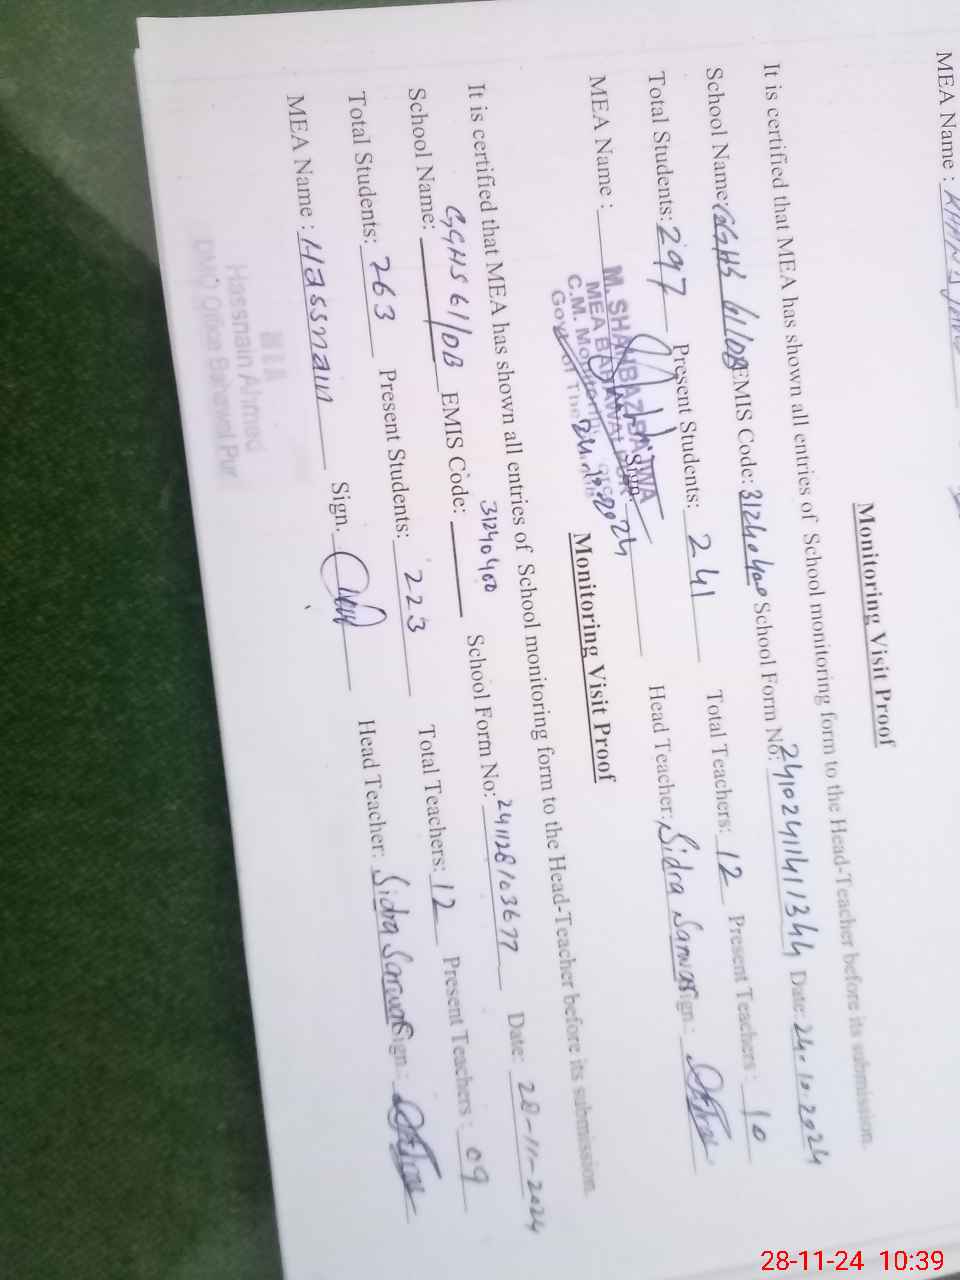 MEA Name :
Monitoring Visit Proof
It is certified that MEA has shown all entries of School monitoring form to the Head-Teacher before its submission.
School Name: GGHS 61/DB EMIS Code: 31240400 School Form No: 241024114111344 Date: 24-10-2024
Total Students: 297 Present Students: 241 Total Teachers: 12 Present Teachers: 10
MEA Name : Sign. Head Teacher: Sidra Sarwar Sign:
M. SHAHBAZ BAJWA
MEA BAHAWALPUR
C.M. Monitoring
Govt. of The
24-10-2024
Monitoring Visit Proof
It is certified that MEA has shown all entries of School monitoring form to the Head-Teacher before its submission.
School Name: GGHS 61/DB EMIS Code: 31240400 School Form No: 241128103677 Date: 28-11-2024
Total Students: 263 Present Students: 223 Total Teachers: 12 Present Teachers: 09
MEA Name : Hassnain Sign. Head Teacher: Sidra Sarwar Sign:
Hassnain Ahmed
DMO Office Bahawal Pur
28-11-24 10:39